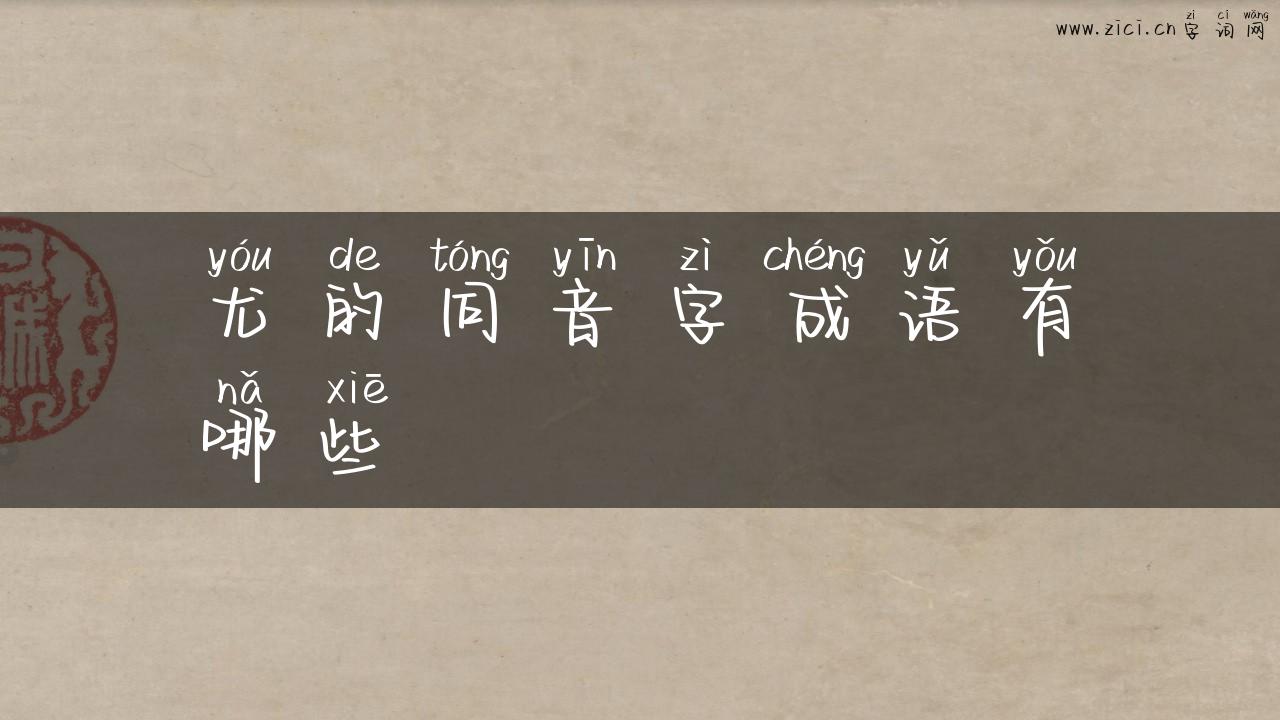 zì cí wǎng
www.zici.cn字词网
yóu de tóng yīn zì chéng yǔ yǒu
尤的同音字成语有
nǎ xiē
哪些